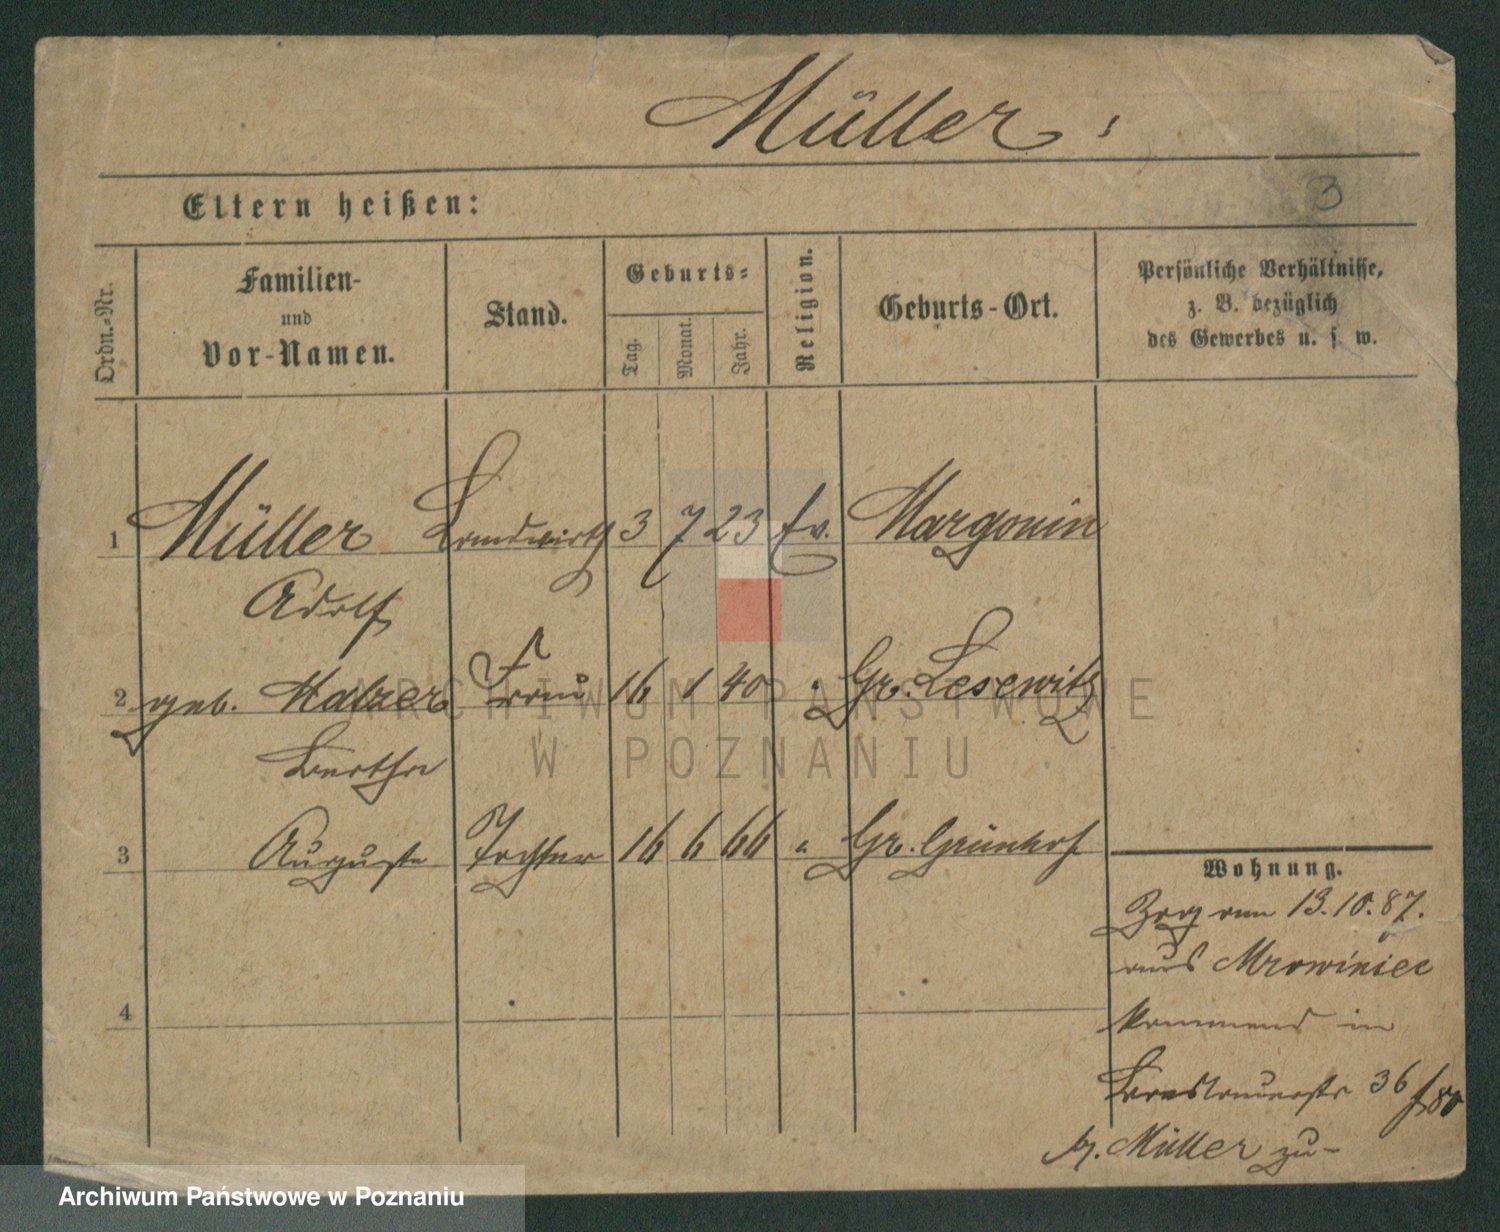 Müller,
3
Eltern heißen:
Ordn.-Nr.
Familien-
und
Vor-Namen.
Stand.
Geburts-
Tag.
Monat.
Jahr.
Religion.
Geburts-Ort.
Persönliche Verhältnisse,
z. B. bezüglich
des Gewerbes u. s. w.
1 Müller Landwirth 3 7 23 Ev. Margonin
Adolf
2 geb. Frau 16 1 40 " Gr. Lesewitz
Bertha
3 Auguste Tochter 16 6 66 " Gr. Grünhof
4
Wohnung.
Zog am 13.10.87.
aus Mrowiniec
kommend in
Breslauerstr 36
Müller zu-
ARCHIWUM PAŃSTWOWE
W POZNANIU
Archiwum Państwowe w Poznaniu